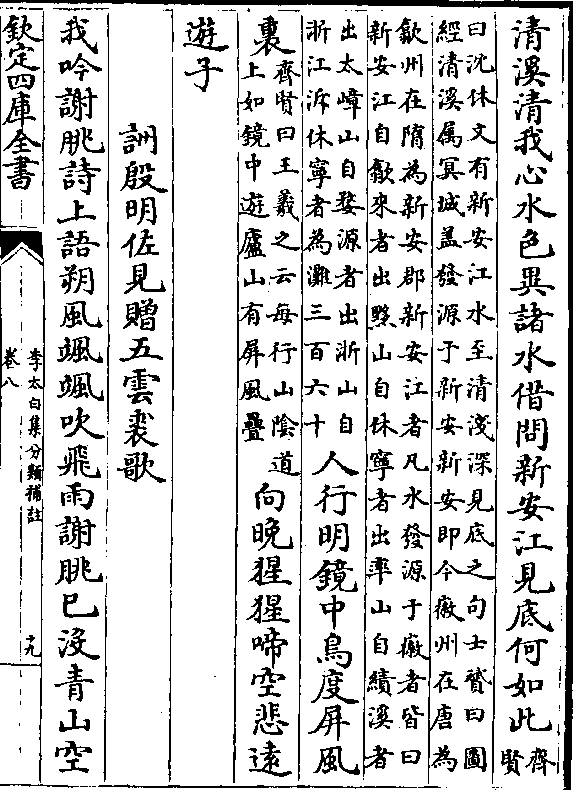 清溪清我心水色異諸水借問新安江見底何如此齊賢
曰沈休文有新安江水至清淺深見底之句士贇曰圖
經清溪属冥城盖發源于新安新安即今徽州在唐為
歙州在隋為新安郡新安江者凡水發源于徽者皆曰
新安江自歙來者出黟山自休寧者出率山自績溪者
出太嶂山自婺源者出浙山自
浙江泝休寧者為灘三百六十
人行明鏡中鳥度屏風
裏
齊賢曰王羲之云每行山陰道
上如鏡中遊廬山有屏風疊
向晚猩猩啼空悲遠
遊子
詶殷明佐見贈五雲裘歌
我吟謝朓詩上語朔風颯颯吹飛雨謝朓已没青山空
欽定四庫全書
李太白集分類補註
卷八
十九